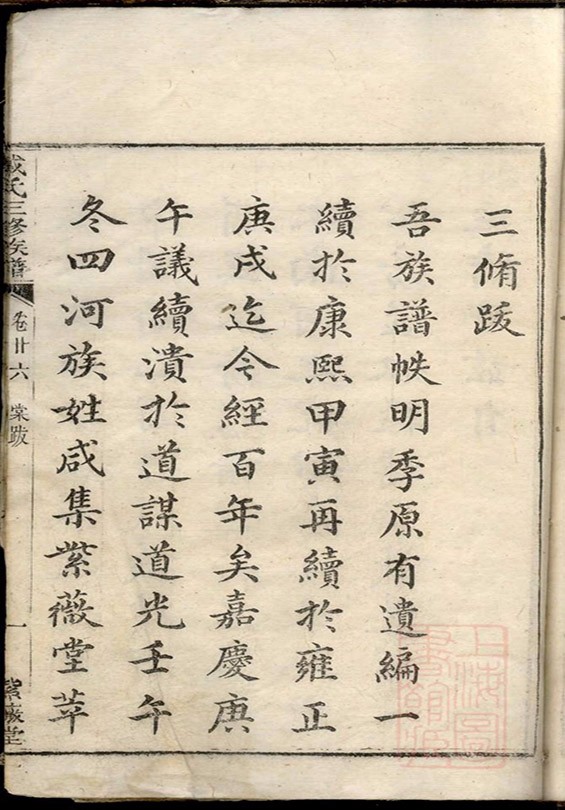 三脩跋
吾族譜帙明季原有遺編一
續於康熙甲寅再續於雍正
庚戌迄今經百年矣嘉慶庚
午議續潰於道謀道光壬午
冬四河族姓咸集紫薇堂萃
氏三修族譜
卷廿六
棠跋
一
紫薇堂
上海圖書館藏